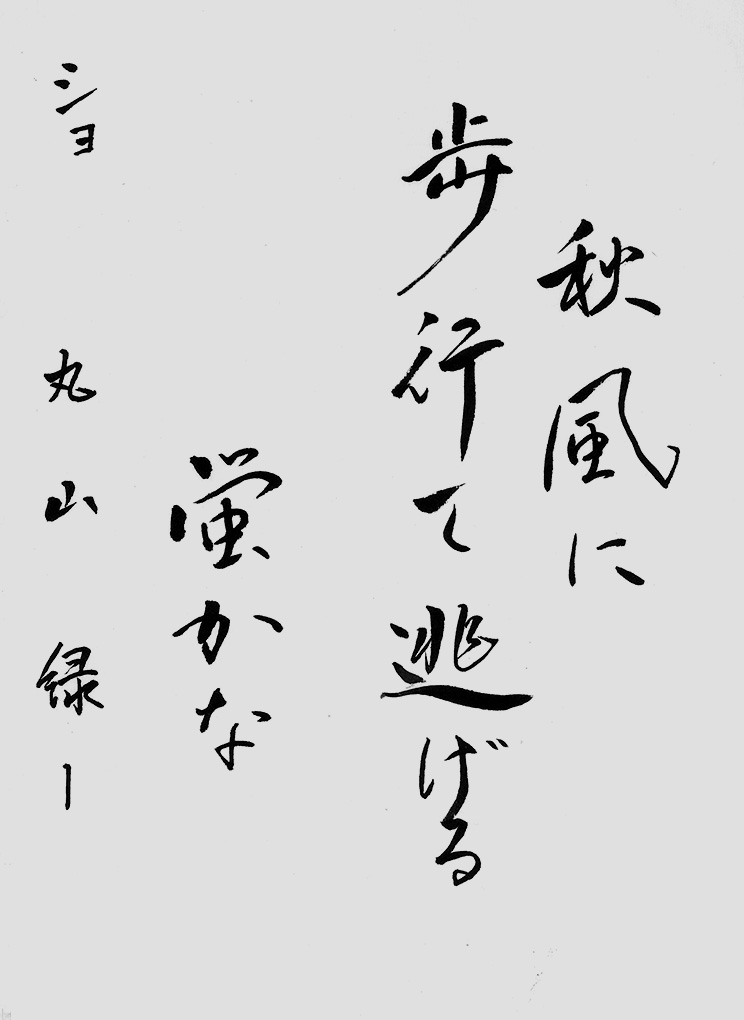 秋風に
歩行て逃げる
蛍かな
ショ 丸山緑一